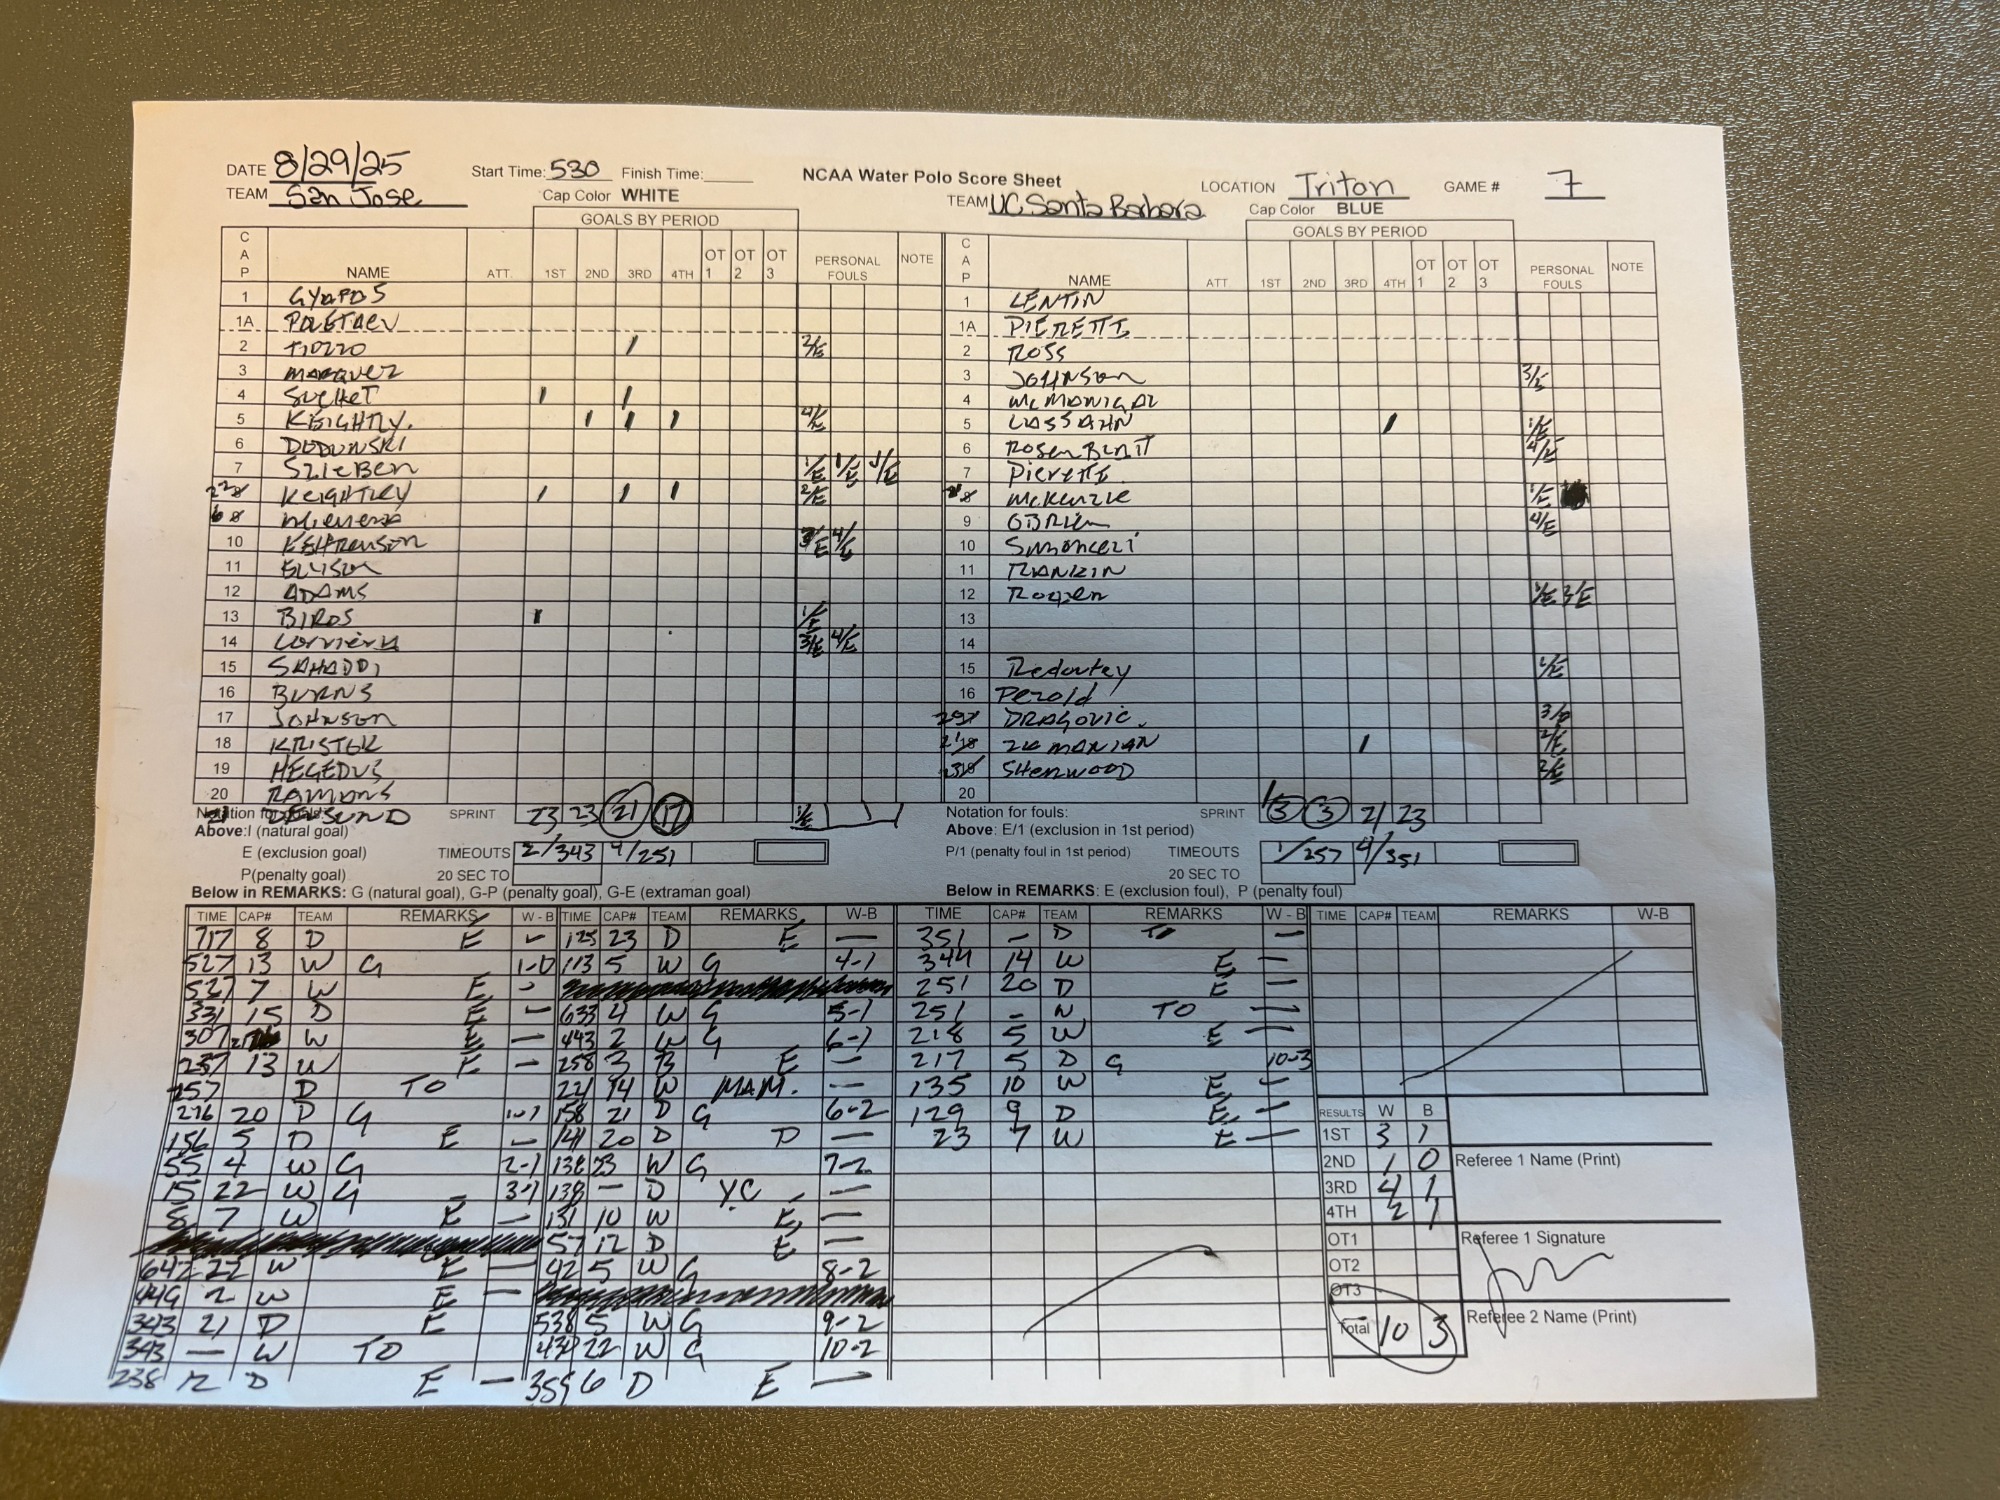 DATE 8/29/25 Start Time: 530 Finish Time: NCAA Water Polo Score Sheet LOCATION Triton GAME # 7
TEAM San Jose Cap Color WHITE TEAM UC Santa Barbara Cap Color BLUE
GOALS BY PERIOD GOALS BY PERIOD
CAP NAME ATT. 1ST 2ND 3RD 4TH OT 1 OT 2 OT 3 PERSONAL FOULS NOTE CAP NAME ATT. 1ST 2ND 3RD 4TH OT 1 OT 2 OT 3 PERSONAL FOULS NOTE
1 1 LENTIN
1A 1A PIERETTI
2 TIOZZO I 2/E 2 ROSS
3 MARQUEZ 3 JOHNSON 3/E
4 I I 4 McMONIGAL
5 KEIGHTLY. I I I 4/E 5 I 1/E
6 6 4/E
7 1/E 1/E 1/E 7 Pieretti
22 KEIGHTLEY I I I 2/E McKenzie 1/E
9 OBRIEN 4/E
10 3/E 4/E 10
11 11 RANKIN
12 ADAMS 12 1/E 3/E
13 BIRDS I 1/E 13
14 3/E 4/E 14
15 SAHADDI 15 1/E
16 BURNS 16 Perold
17 JOHNSON DRAGOVIC.
18 21 ZAMANIAN I 2/E
19 HEGEDUS SHERWOOD 2/E
20 RAMONS 20
Notation for goals: SPRINT 23 23 21 17 Notation for fouls: SPRINT 3 3 21 23
Above: I (natural goal) Above: E/1 (exclusion in 1st period)
E (exclusion goal) TIMEOUTS 2/343 4/251 P/1 (penalty foul in 1st period) TIMEOUTS 1/257 4/351
P(penalty goal) 20 SEC TO 20 SEC TO
Below in REMARKS: G (natural goal), G-P (penalty goal), G-E (extraman goal) Below in REMARKS: E (exclusion foul), P (penalty foul)
TIME CAP# TEAM REMARKS W - B TIME CAP# TEAM REMARKS W-B TIME CAP# TEAM REMARKS W - B TIME CAP# TEAM REMARKS W-B
717 8 D E - 125 23 D E — 351 - D TO -
527 13 W G 1-0 113 5 W G 4-1 344 14 W E -
527 7 W E - 251 20 D E -
331 15 D E - 633 4 W G 5-1 251 - W TO —
307 W E - 443 2 W G 6-1 218 5 W E -
257 13 W E - 258 3 B E - 217 5 D G 10-3
257 D TO 221 14 W MAM. - 135 10 W E -
216 20 D G 1-1 158 21 D G 6-2 129 9 D E -
156 5 D E - 141 20 D P — 23 7 W E -
RESULTS W B
1ST 3 1
55 4 W G 2-1 138 23 W G 7-2 2ND 1 0 Referee 1 Name (Print)
15 22 W G 3-1 138 — D YC - 3RD 4 1
7 W E - 131 10 W E - 4TH 2 1
57 12 D E - OT1 Referee 1 Signature
642 22 W E — 42 5 W G 8-2 OT2
449 2 W E - OT3
343 21 D E 538 5 W G 9-2 Total 10 3 Referee 2 Name (Print)
343 — W TO 434 22 W G 10-2
238 12 D E - 359 6 D E —